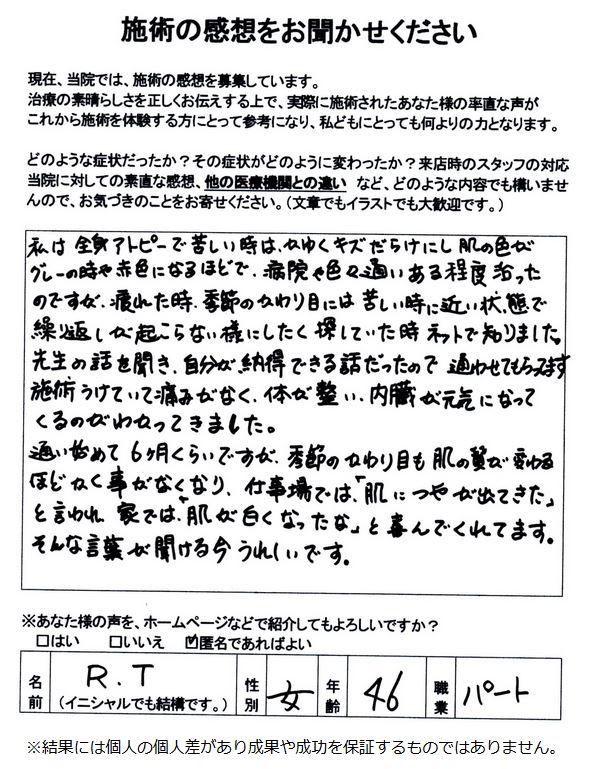 施術の感想をお聞かせください
現在、当院では、施術の感想を募集しています。
治療の素晴らしさを正しくお伝えする上で、実際に施術されたあなた様の率直な声が
これから施術を体験する方にとって参考になり、私どもにとっても何よりの力となります。
どのような症状だったか？その症状がどのように変わったか？来店時のスタッフの対応
当院に対しての素直な感想、他の医療機関との違い など、どのような内容でも構いませ
んので、お気づきのことをお寄せください。（文章でもイラストでも大歓迎です。）
私は 全身アトピーで苦しい時は、かゆくキズだらけにし 肌の色が
グレーの時や赤色になるほどで、病院や色々通いある程度治った
のですが、疲れた時、季節のかわり目には 苦しい時に近い状態で
繰り返しが起こらない様にしたく 探していた時 ネットで知りました。
先生の話を聞き、自分が納得できる話だったので 通わせてもらってます
施術うけていて痛みがなく、体が整い、内臓が元気になって
くるのがわかってきました。
通い始めて 6ヶ月くらいですが、季節のかわり目も 肌の質が変わる
ほどかく事がなくなり、仕事場では、「肌につやが出てきた」
と言われ 家では、「肌が白くなったな」と喜んでくれてます。
そんな言葉が聞ける今うれしいです。
※あなた様の声を、ホームページなどで紹介してもよろしいですか？
□はい □いいえ ☑匿名であればよい
名前 R.T （イニシャルでも結構です。） 性別 女 年齢 46 職業 パート
※結果には個人の個人差があり成果や成功を保証するものではありません。